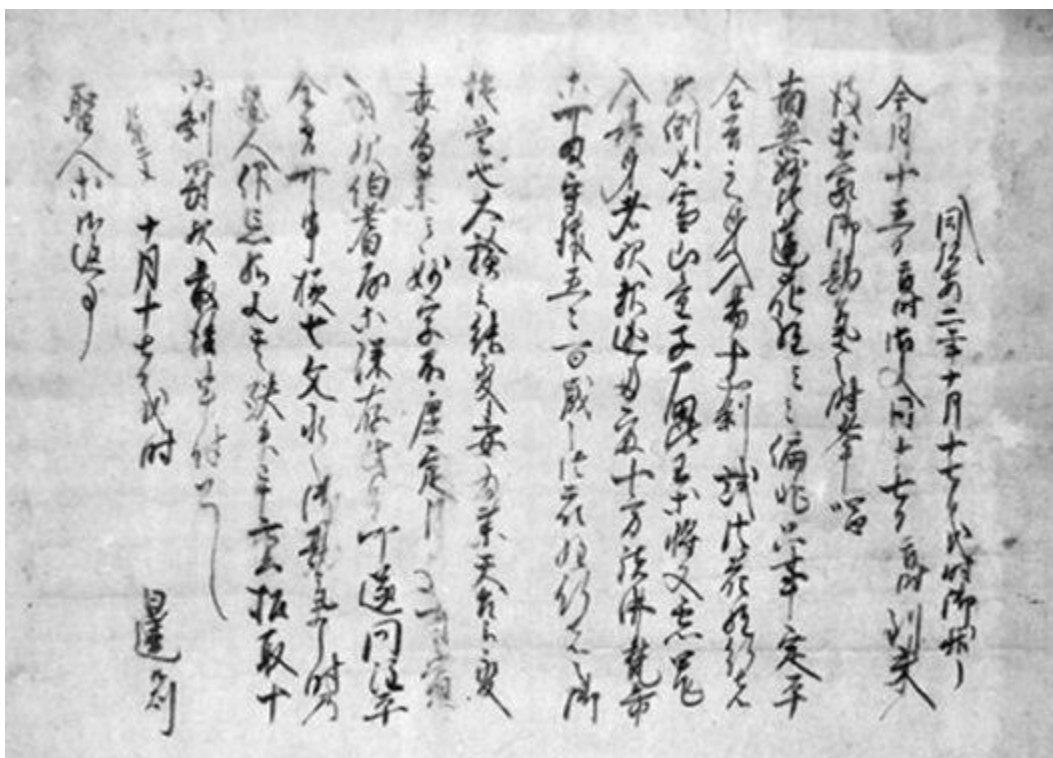 同弘安二年十月十七日戌時御状
今月十五日酉時御文同十七日酉時到来
彼等蒙御勘気之時奉唱
南無妙法蓮花経々々偏非只事定平
金吾之身入易十刹試法花経行者
歟例如雪山童子尸毘王等将又悪鬼
入其身者歟釈迦多宝十方諸仏梵帝
等可為守護五々百歳之法花経行者之御
誓是也大論云能変毒為薬天台云変
毒為薬云々妙字不虚定須臾有賞
罰歟伯耆房等深存此旨可遂問注平
金吾可申様文永之御勘気之時乃
聖人仰忘給歟其殃未畢重招取十
羅刹罰歟最後申付
十月十七日戌時 日蓮
聖人等御返事